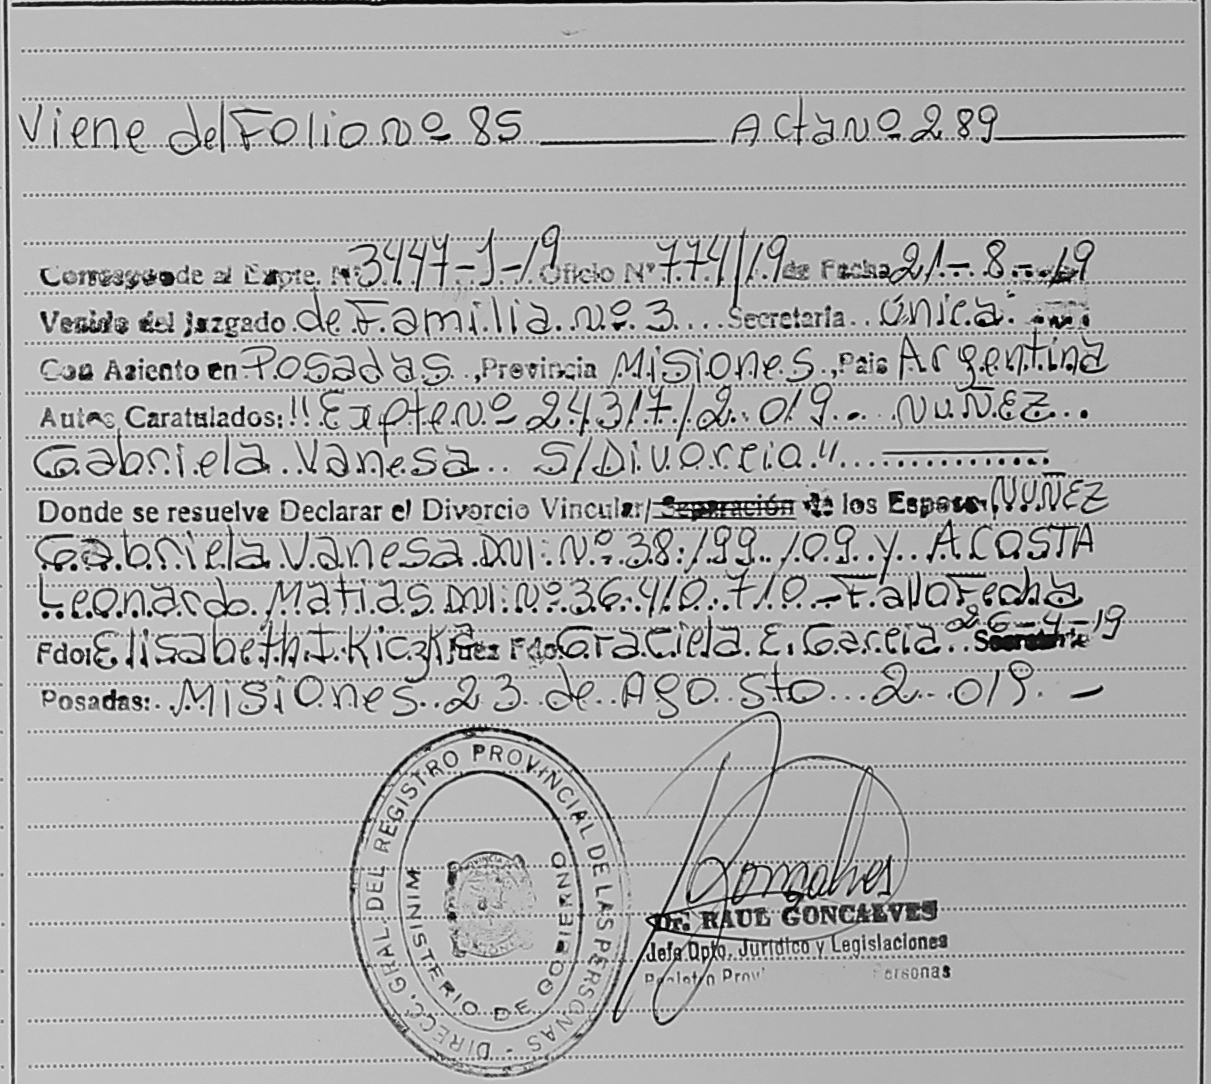 Viene del Folio nº 85 Acta Nº 289
Corresponde al Expte. Nº 3447-J-19 Oficio Nº 774/19 de Fecha 21-8-19
Venido del Juzgado de Familia nº 3 Secretaria Única
Con Asiento en Posadas, Provincia Misiones, Pais Argentina
Autos Caratulados: "Expte nº 24317/2019 - NUÑEZ
Gabriela Vanesa S/Divorcio"
Donde se resuelve Declarar el Divorcio Vincular/Separación de los Esposos NUÑEZ
Gabriela Vanesa DNI: Nº 38.199.109 y ACOSTA
Leonardo Matias DNI: Nº 36.410.710 - Fallo Fecha
26-4-19
Fdo: Elisabeth I. Kiczka Juez Fdo: Graciela E. Garcia Secretaria
Posadas: Misiones 23 de Agosto 2019 -
DIRECC. GRAL. DEL REGISTRO PROVINCIAL DE LAS PERSONAS -
MINISTERIO DE GOBIERNO
Goncalves
Dr. RAUL GONCALVES
Jefe Dpto. Jurídico y Legislaciones